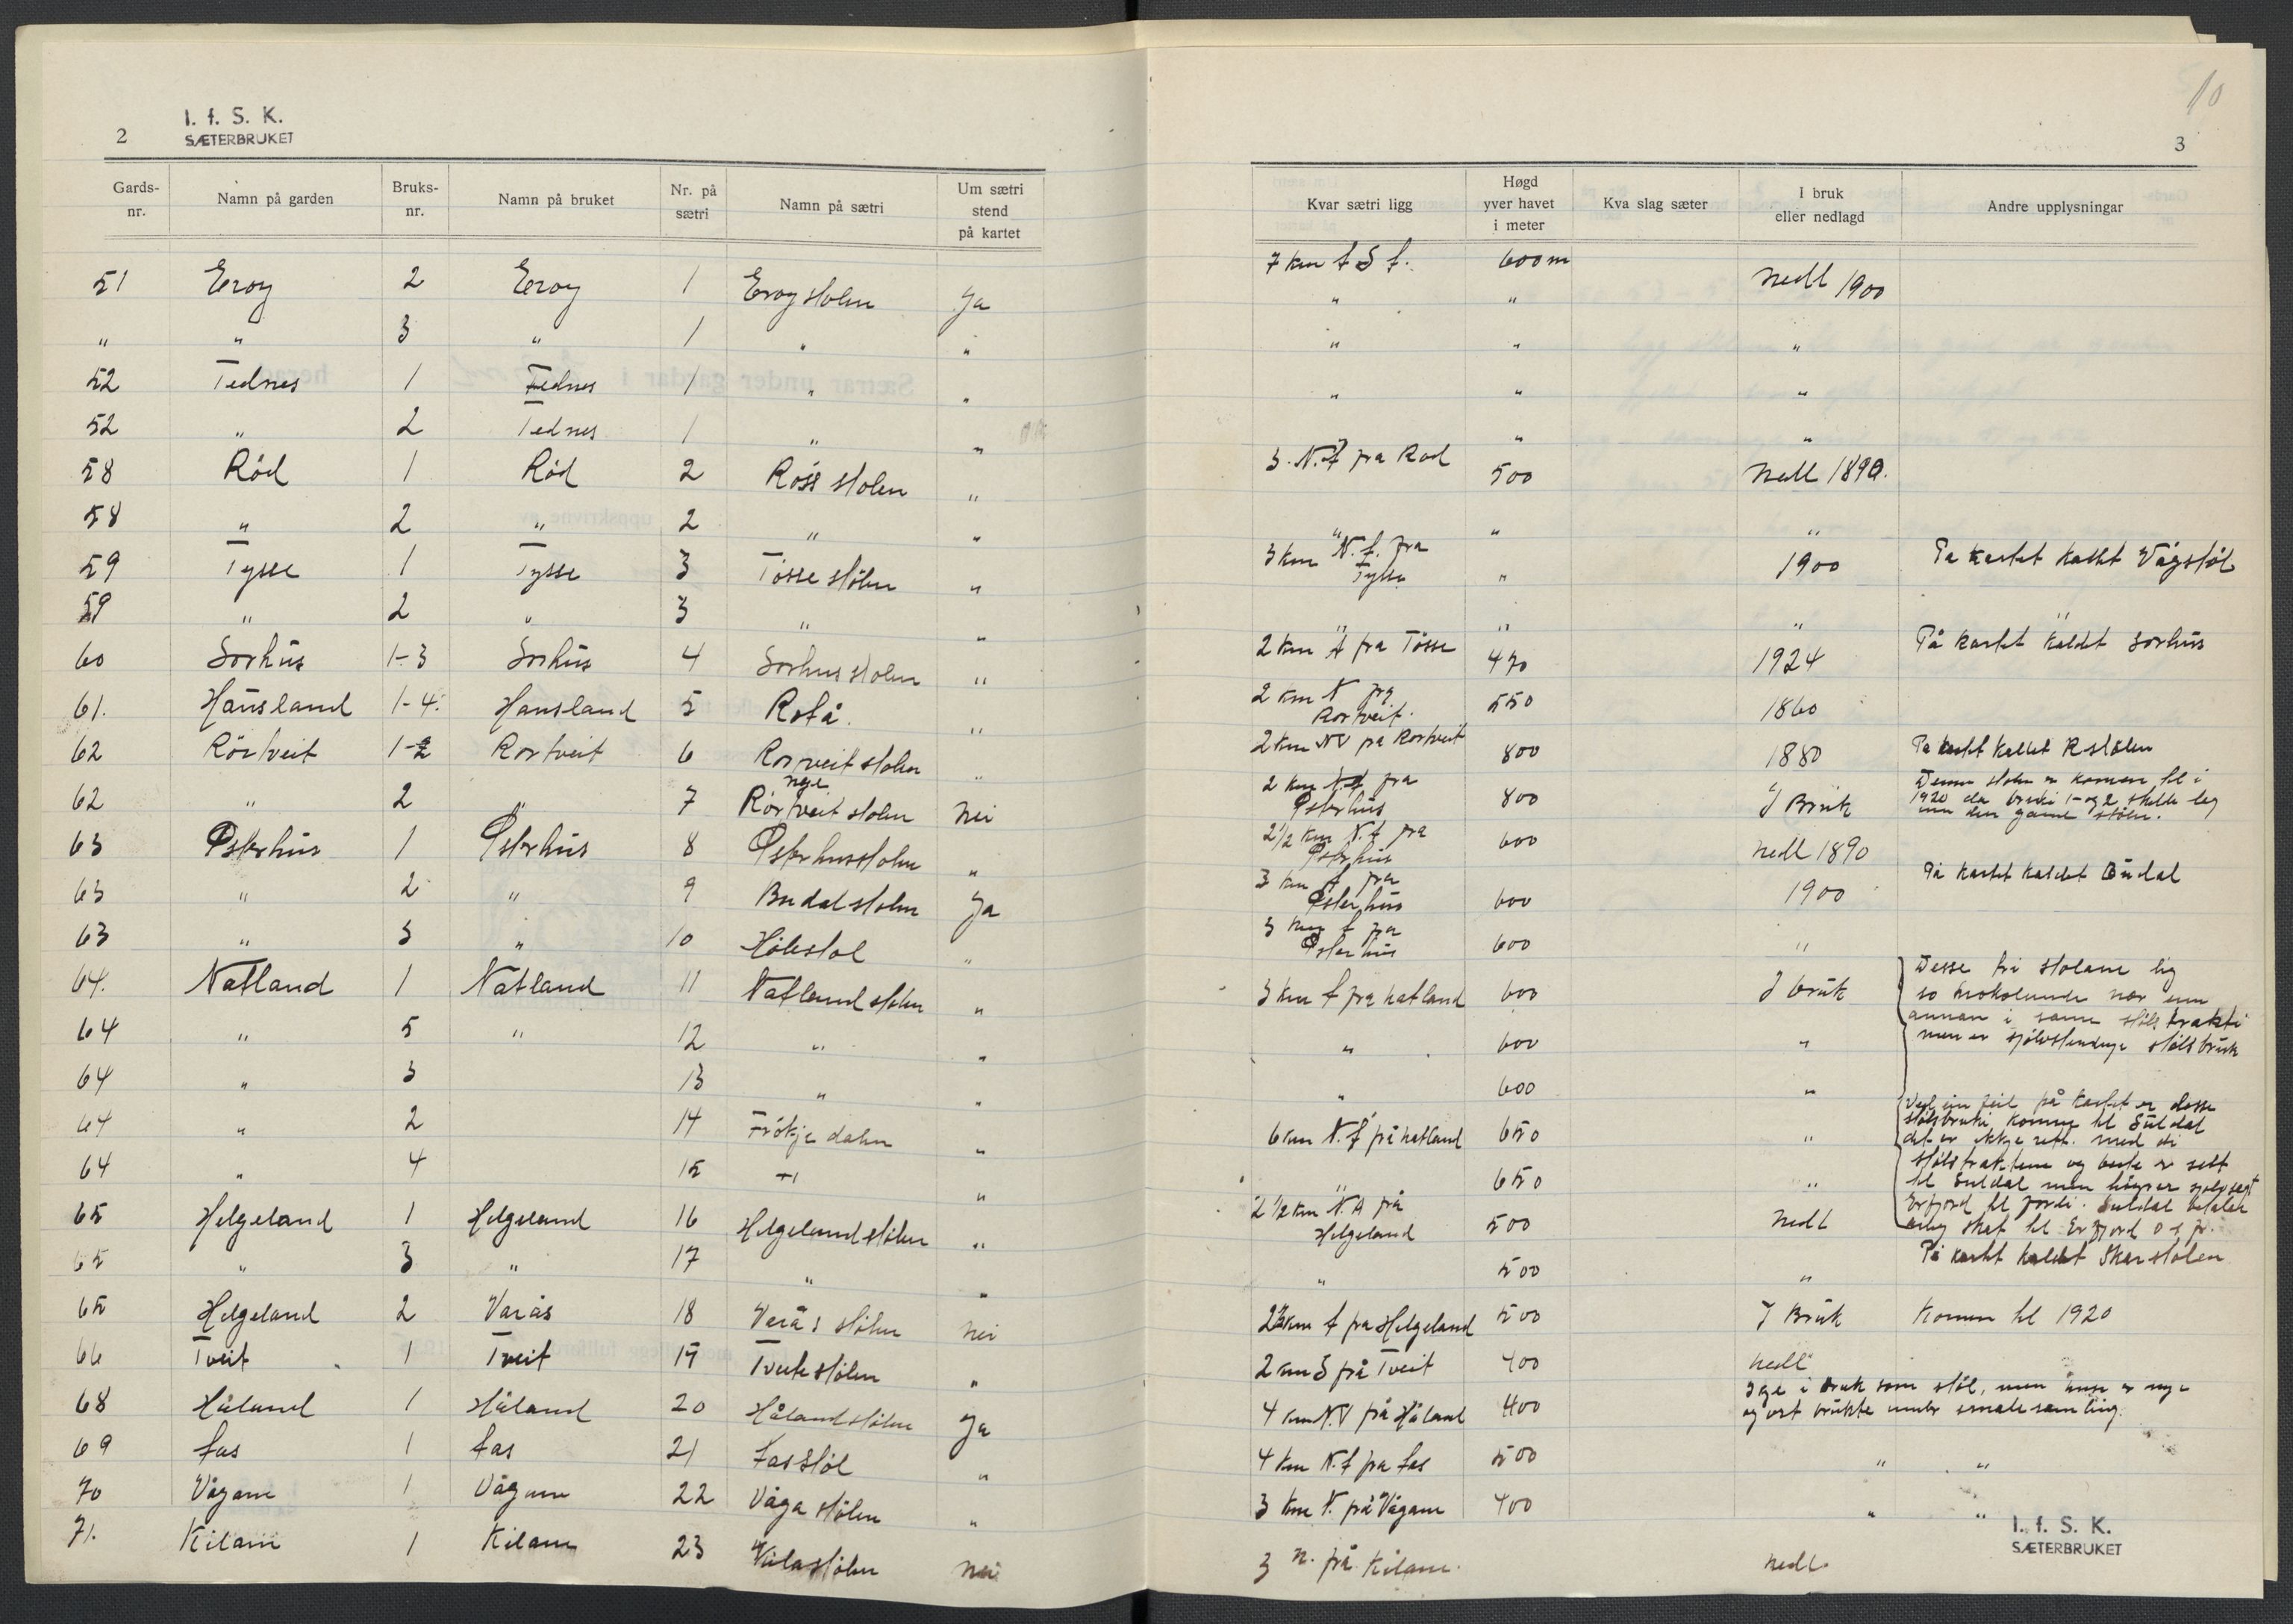 I. f. S. K.
SÆTERBRUKET
2
Gards-nr. Namn på garden Bruks-nr. Namn på bruket Nr. på sætri Namn på sætri Um sætri stend på kartet
51 Eroy 2 Eroy 1 Eroystolen Ja
" " 3 " 1 " "
52 Tednes 1 Tednes 1 " "
52 " 2 Tednes 1 " "
58 Röd 1 Röd 2 Röss stolen "
58 " 2 " 2 " "
59 Tysse 1 Tysse 3 Tösse stölen "
59 " 2 " 3 " "
60 Sorhus 1-3 Sorhus 4 Sorhusstolen "
61. Hausland 1-4. Hausland 5 Rotå. "
62 Rörtveit 1-2 Rortveit 6 Rorveit stolen "
62 " 2 " 7 nye Rörtveit stolen nei
63 Østerhus 1 Østerhus 8 Østerhusstolen "
63 " 2 " 9 Budalstolen Ja
63 " 3 " 10 Hölestol "
64. Natland 1 Natland 11 Natland stolen "
64 " 5 " 12 " "
64 " 3 13 " "
64 " 2 14 Frökje dalen "
64 " 4 15 "
65 Helgeland 1 Helgeland 16 Helgelandstölen "
65 " 3 " 17 " "
65 Helgeland 2 Varås 18 Verås stölen nei
66 Tveit 1 Tveit 19 Tveitestölen "
68 Håland 1 Håland 20 Hålandstölen Ja
69 fas 1 fas 21 fasstöl "
70 Vågane 1 Vågane 22 Våga stölen "
71. Kilane 1 Kilane 23 Kilastölen nei
10
3
Kvar sætri ligg Høgd yver havet i meter Kva slag sæter I bruk eller nedlagd Andre upplysningar
7 km 600 m
" " nedl 1900
" " "
" " "
" "
3. N. fra Rød 500 nedl 1890.
" " "
3 km N. fra Tysse " 1900 På kartet kaldt Vågstöl
" " " "
2 km fra Tösse 470 1924 På kartet kaldt Sorhus
2 km N fra Rortveit. 550 1860
2 km NV fra Rortveit 800 1880 På kartet kallet Rstölen
2 km fra Østerhus 800 I Bruk Denne stolen er komen til i
1920 da bruki 1 og 2 skilde seg
um den gamle stölen.
2 1/2 km N. fra Østerhus 600 nedl 1890
3 km fra Østerhus 600 1900 På kartet kaldet Budal
3 km fra Østerhus 600 "
3 km fra Natland 600 I bruk Desse tri stolane lig
so nær um
annan i same stöls trakti
men er sjölvstendige stölsbruk
" 600 "
" 600 "
6 km N. frå Natland 650 " Ved ein feil på kartet er desse
stölsbruki komne til Suldal
det er ikkje rett. med di
stölstraktene og beite er selt
til Suldal men
Erfjord til Suldal betaler
skat til Erfjord o s fr.
" 650 "
2 1/2 km N. A frå Helgeland 500 nedl
" 500 " På kartet kaldet Skarstölen
2 km fra Helgeland 500 I Bruk Komen til 1920
2 km S frå Tveit 400 nedl
4 km NV frå Håland 400 Ikje i bruk som stöl, men huse er nye
og vert brukte under smalesamling.
4 km N. fra fas 500 " "
3 km N. frå Vågane 400 " "
3 n. frå Kilane. nedl.
I. f. S. K.
SÆTERBRUKET